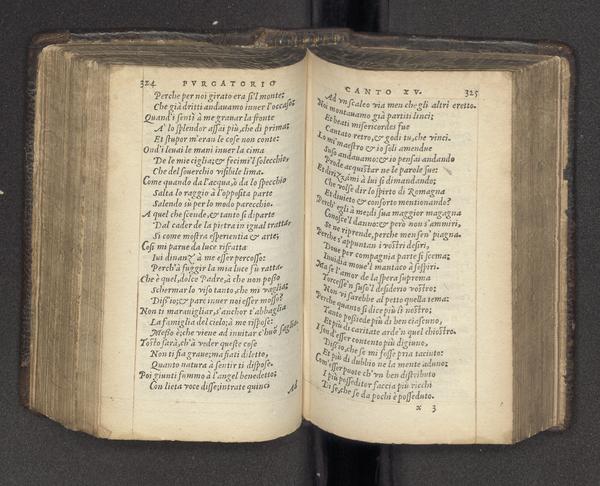 324 PVRGATORIO
Perche per noi girato era sì'l monte;
Che già dritti andauamo inuer l'occaso;
Quand'i sentì à me grauar la fronte
A' lo splendor assai più, che di prima;
Et stupor m'eran le cose non conte:
Ond'i leuai le mani inuer la cima
De le mie ciglia; & fecimi'l solecchio,
Che del souerchio visibile lima.
Come quando da l'acqua, ò da lo specchio
Salta lo raggio à l'opposita parte
Salendo sù per lo modo parecchio
A quel che scende, & tanto si diparte
Dal cader de la pietra in igual tratta,
Si come mostra esperientia & arte;
Così mi parue da luce rifratta
Iui dinanzi à me esser percosso:
Perch'à fuggir la mia luce fù ratta.
Che è quel, dolce Padre, à che non posso
Schermar lo viso tanto, che mi vaglia;
Diss'io; & pare inuer noi esser mosso?
Non ti marauigliar, s'anchor t'abbaglia
La famiglia del cielo; à me rispose:
Messo è, che viene ad inuitar c'huō saglia.
Tosto sarà, ch'à veder queste cose
Non ti fia graue; ma fiati diletto,
Quanto natura à sentir ti dispose.
Poi giunti fummo à l'angel benedetto;
Con lieta voce disse; intrate quinci
Ad
CANTO XV. 325
Ad vn scaleo via men che gli altri eretto.
Noi montauamo già partiti linci;
Et beati misericordes fue
Cantato retro, & godi tu, che vinci.
Lo mi maestro & io soli amendue
Suso andauamo: & io pensai andando
Prode acquistar ne le parole sue:
Et dirizzami à lui sì dimandando;
Che volse dir lo spirto di Romagna
Et diuieto & consorto mentionando?
Perch'egli à me; di sua maggior magagna
Conosce'l danno: & però non s'ammiri,
Se ne riprende, perche men sen' piagna.
Perche s'appuntan i vostri desiri,
Doue per compagnia parte si scema;
Inuidia moue'l mantaco à sospiri.
Ma se l'amor de la spera suprema
Torcesse'n suso'l desiderio vostro;
Non vi sarebbe al petto quella tema:
Perche quanto si dice più lì nostro;
Tanto possiede più di ben ciascuno,
Et più di caritate arde'n quel chiostro.
I son d'esser contento più digiuno,
Diss'io, che se mi fosse pria taciuto:
Et più di dubbio ne la mente aduno;
Com'esser puote ch'vn ben distributo
I più posseditor faccia più ricchi
Di se, che se da pochi è posseduto.
x 3